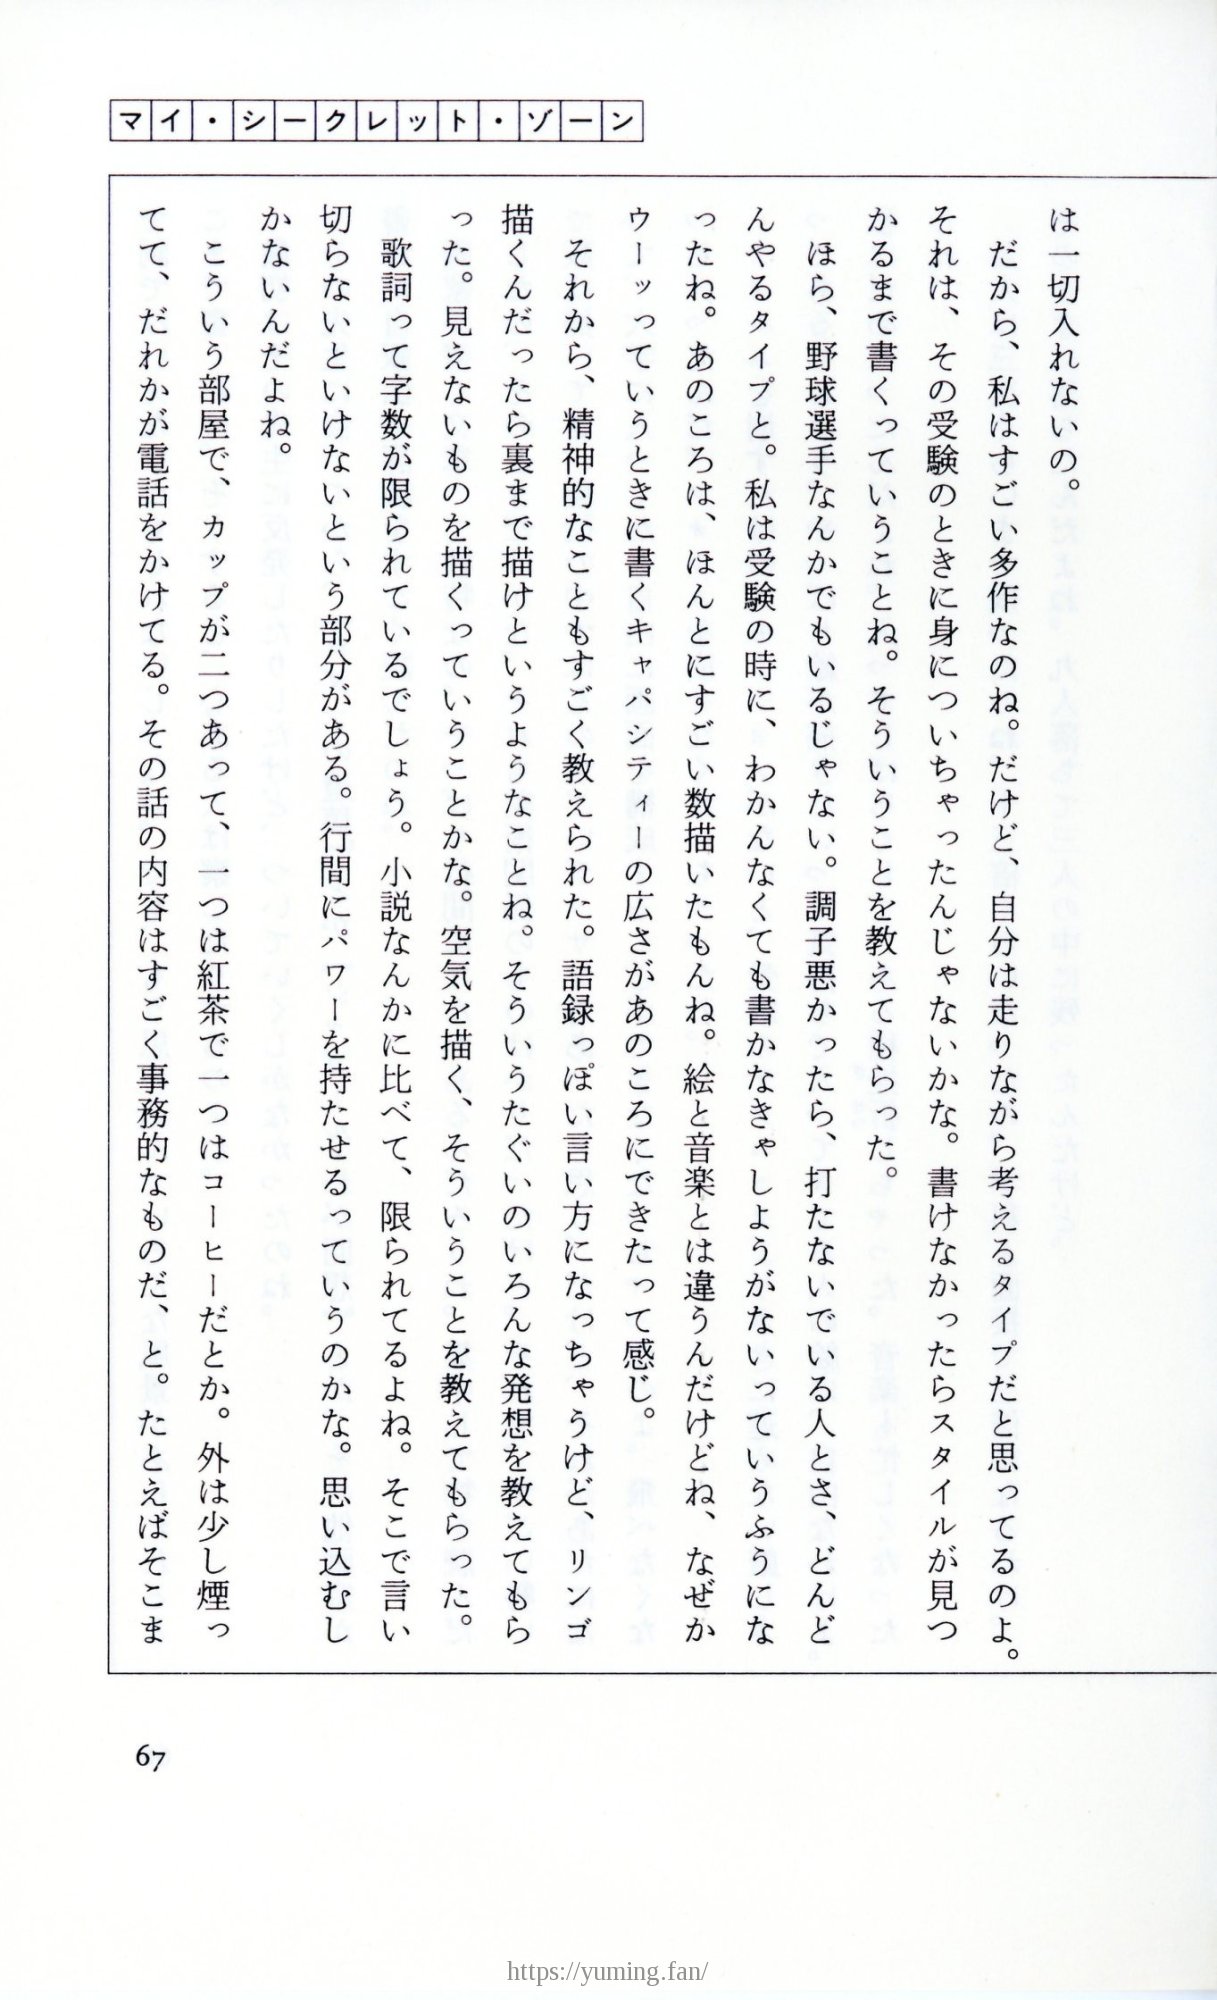 マイ・シークレット・ゾーン
は一切入れないの。
だから、私はすごい多作なのね。だけど、自分は走りながら考えるタイプだと思ってるのよ。
それは、その受験のときに身についちゃったんじゃないかな。書けなかったらスタイルが見つ
かるまで書くっていうことね。そういうことを教えてもらった。
ほら、野球選手なんかでもいるじゃない。調子悪かったら、打たないでいる人とさ、どんど
んやるタイプと。私は受験の時に、わかんなくても書かなきゃしようがないっていうふうにな
ったね。あのころは、ほんとにすごい数描いたもんね。絵と音楽とは違うんだけどね、なぜか
ウーッっていうときに書くキャパシティーの広さがあのころにできたって感じ。
それから、精神的なこともすごく教えられた。語録っぽい言い方になっちゃうけど、リンゴ
描くんだったら裏まで描けというようなことね。そういうたぐいのいろんな発想を教えてもら
った。見えないものを描くっていうことかな。空気を描く、そういうことを教えてもらった。
歌詞って字数が限られているでしょう。小説なんかに比べて、限られてるよね。そこで言い
切らないといけないという部分がある。行間にパワーを持たせるっていうのかな。思い込むし
かないんだよね。
こういう部屋で、カップが二つあって、一つは紅茶で一つはコーヒーだとか。外は少し煙っ
てて、だれかが電話をかけてる。その話の内容はすごく事務的なものだ、と。たとえばそこま
67
https://yuming.fan/